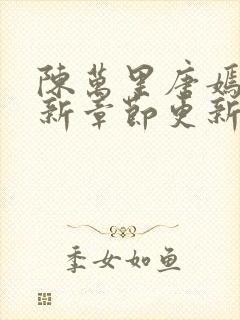 陳萬里唐嫣
新章節更新
季女如鱼